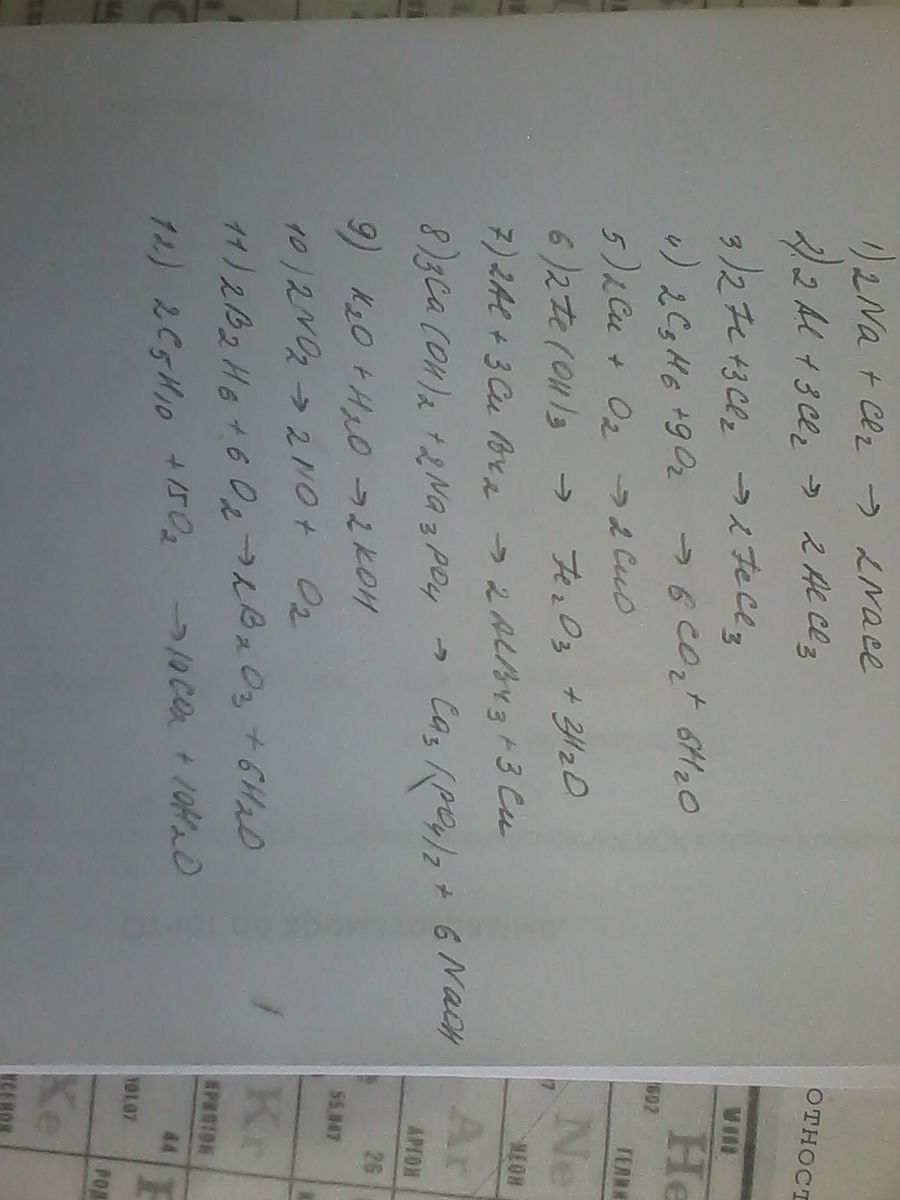 1) 2Na + Cl₂ → 2NaCl
2) 2Al + 3Cl₂ → 2AlCl₃
3) 2Fe + 3Cl₂ → 2FeCl₃
4) 2C₃H₆ + 9O₂ → 6CO₂ + 6H₂O
5) 2Cu + O₂ → 2CuO
6) 2Fe(OH)₃ → Fe₂O₃ + 3H₂O
7) 2Al + 3CuBr₂ → 2AlBr₃ + 3Cu
8) 3Ca(OH)₂ + 2Na₃PO₄ → Ca₃(PO₄)₂ + 6NaOH
9) K₂O + H₂O → 2KOH
10) 2NO₂ → 2NO + O₂
11) 2B₂H₆ + 6O₂ → 2B₂O₃ + 6H₂O
12) 2C₅H₁₀ + 15O₂ → 10CO₂ + 10H₂O
ОТНОСТ
He
602
ГЕЛИ
Ne
НЕОН
Ar
АРГОН
26
55,847
Kr
КРИПТОН
44
101,07
РО
Xe
КСЕНОН